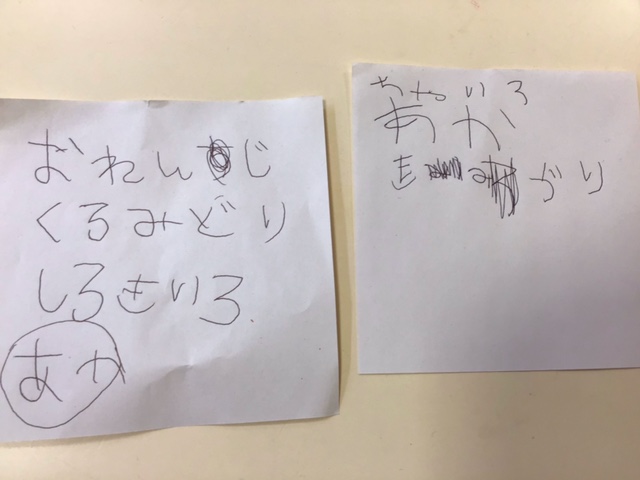 おれんじ
くろみどり
しろきいろ.
あか
ちゃいろ
あか
き がり